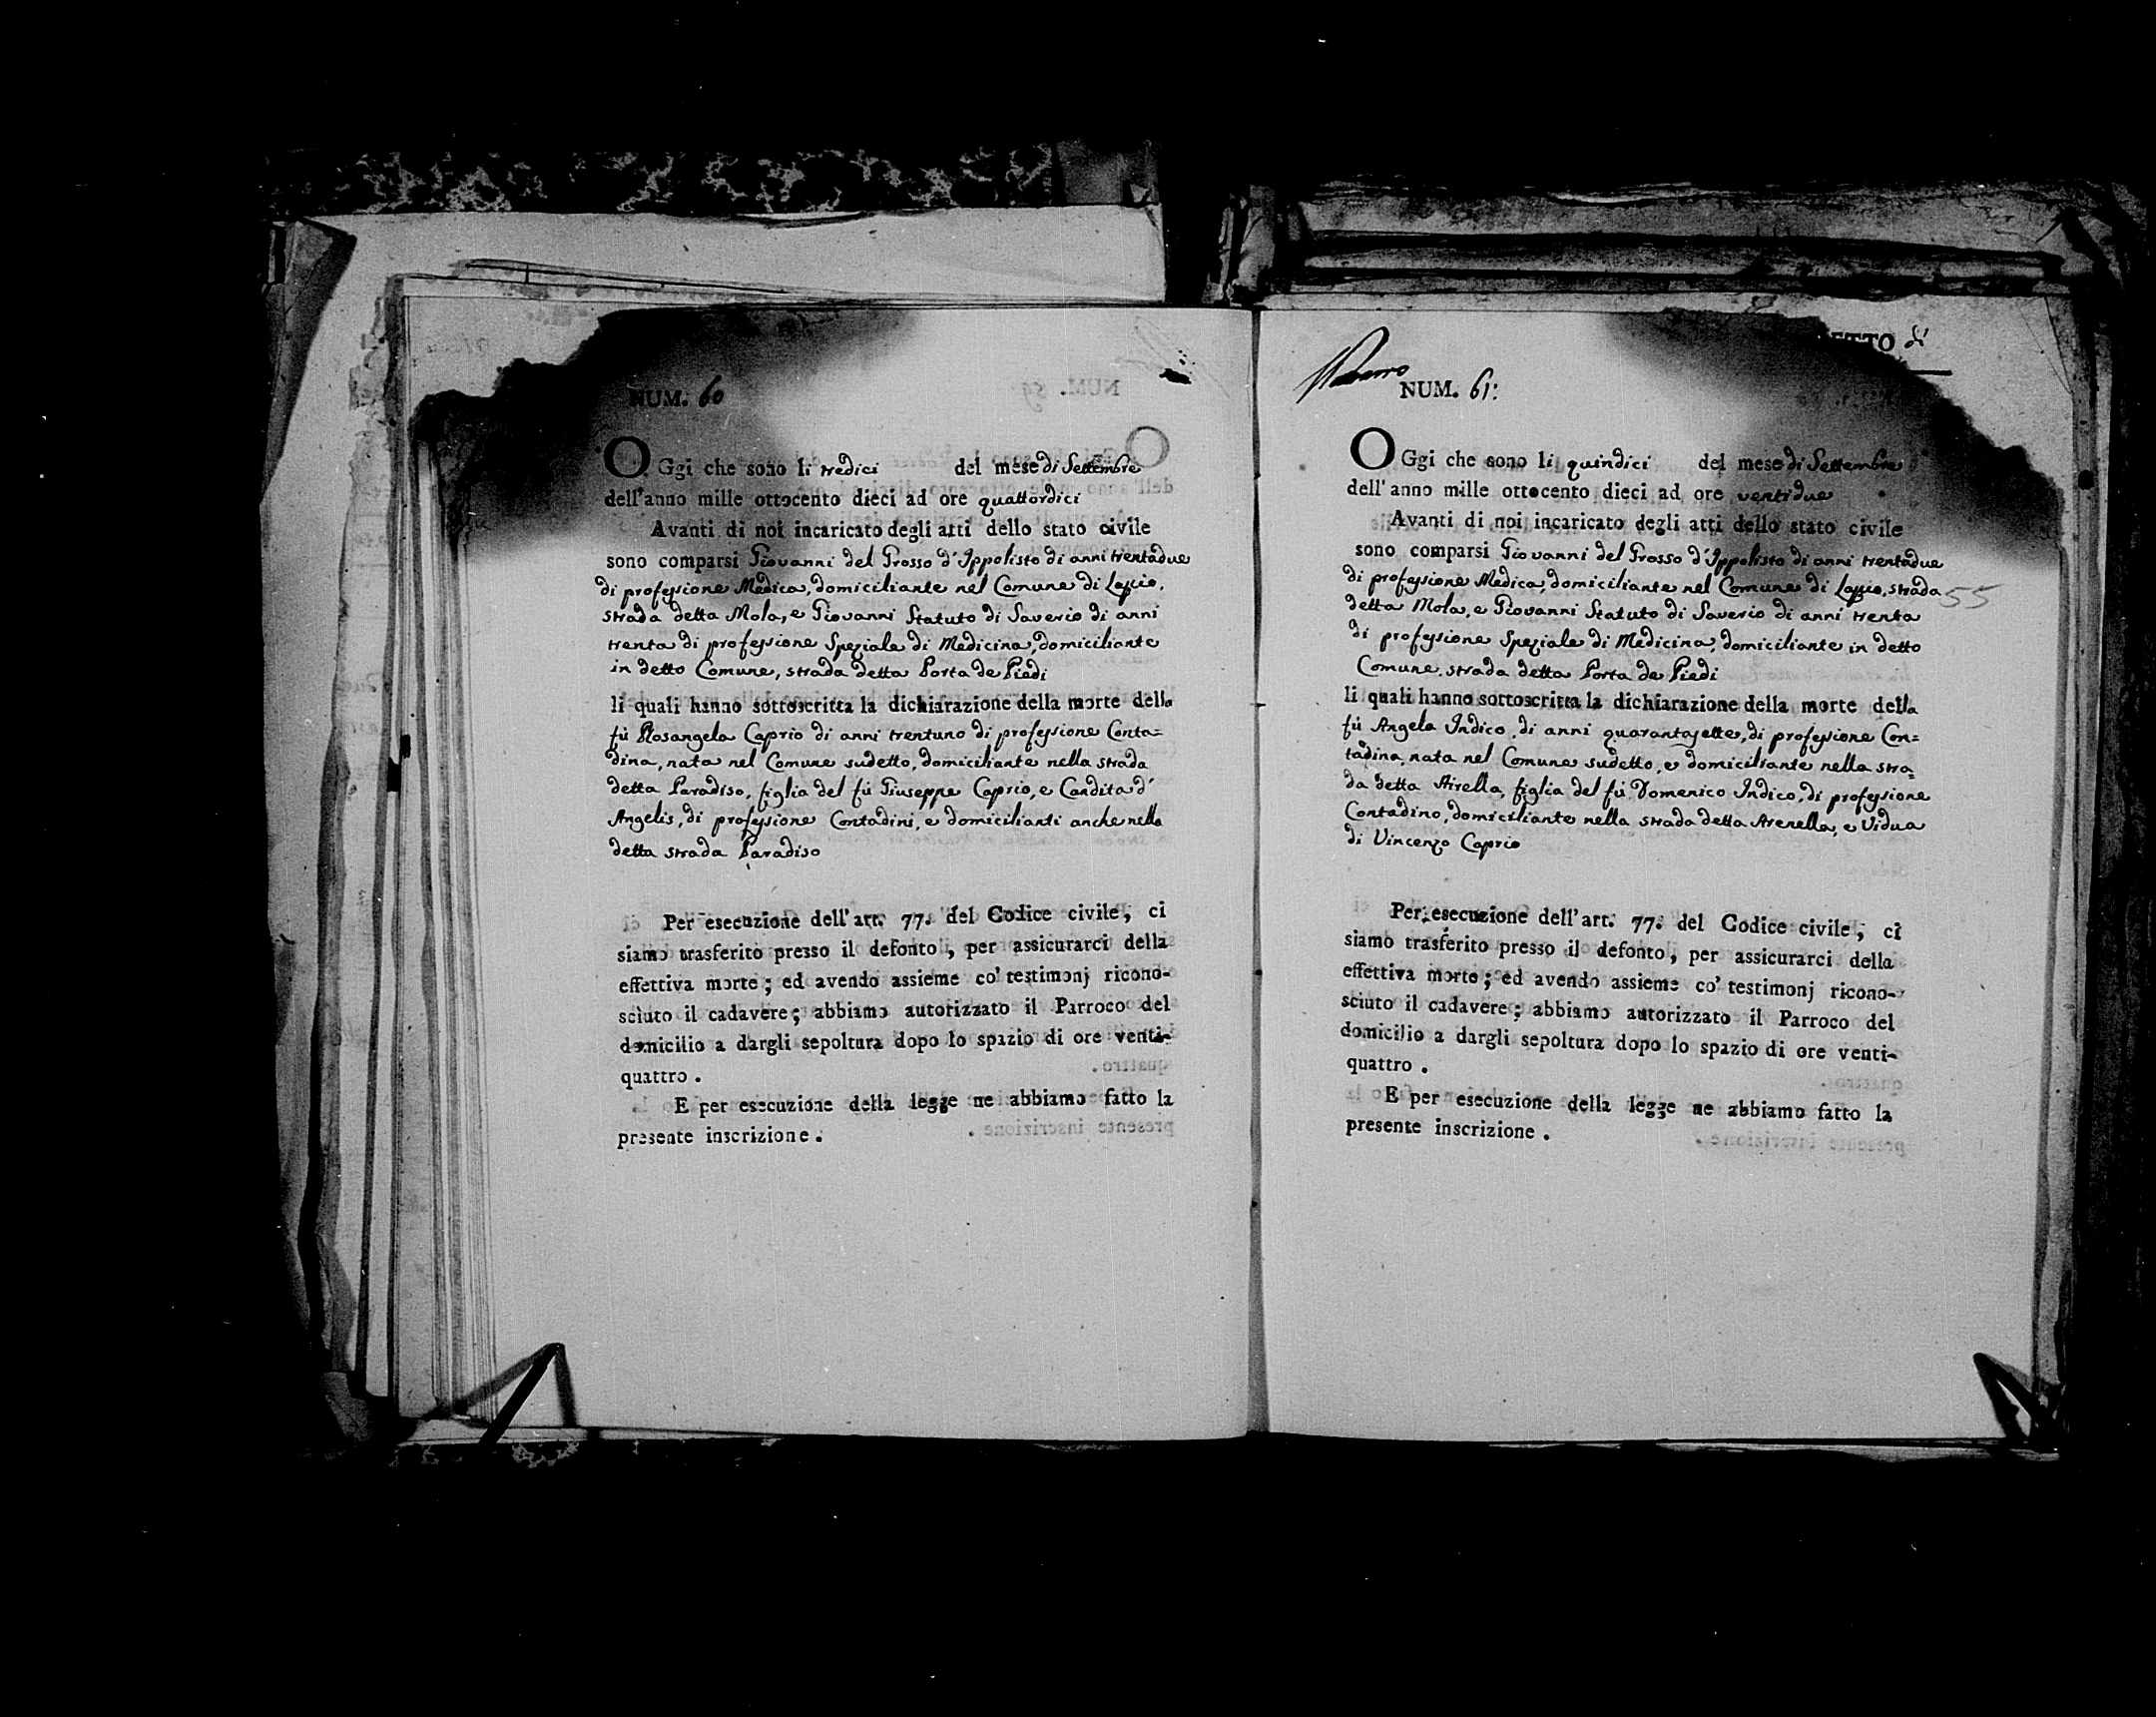 NUM. 60
OGgi che sono li tredici del mese di Settembre
dell'anno mille ottocento dieci ad ore quattordici
Avanti di noi incaricato degli atti dello stato civile
sono comparsi Giovanni del Grosso d'Ippolisto di anni trentadue
di professione Medica, domiciliante nel Comune di
strada detta Mola, e Giovanni Statuto di Saverio di anni
trenta di professione Speziale di Medicina, domiciliante
in detto Comune, strada detta Porta de Piedi
li quali hanno sottoscritta la dichiarazione della morte della
fù Rosangela Caprio di anni trentuno di professione Conta=
dina, nata nel Comune sudetto, domiciliante nella strada
detta Paradiso, figlia del fù Giuseppe Caprio, e Candita d'
Angelis, di professione Contadini, e domicilianti anche nella
detta strada Paradiso
Per esecuzione dell'art. 77. del Codice civile, ci
siamo trasferito presso il defonto, per assicurarci della
effettiva morte; ed avendo assieme co' testimonj ricono-
sciuto il cadavere; abbiamo autorizzato il Parroco del
domicilio a dargli sepoltura dopo lo spazio di ore venti-
quattro.
E per esecuzione della legge ne abbiamo fatto la
presente inscrizione.
ETTO di
NUM. 61:
OGgi che sono li quindici del mese di Settembre
dell'anno mille ottocento dieci ad ore ventidue
Avanti di noi incaricato degli atti dello stato civile
sono comparsi Giovanni del Grosso d'Ippolisto di anni trentadue
di professione Medica, domiciliante nel Comune di strada 55
detta Mola, e Giovanni Statuto di Saverio di anni trenta
di professione Speziale di Medicina, domiciliante in detto
Comune, strada detta Porta de Piedi
li quali hanno sottoscritta la dichiarazione della morte della
fù Angela Indico, di anni quarantasette, di professione Con=
tadina, nata nel Comune sudetto, e domiciliante nella stra=
da detta Airella, figlia del fù Domenico Indico, di professione
Contadino, domiciliante nella strada detta Arenella, e Vidua
di Vincenzo Caprio
Per esecuzione dell'art. 77. del Codice civile, ci
siamo trasferito presso il defonto, per assicurarci della
effettiva morte; ed avendo assieme co' testimonj ricono-
sciuto il cadavere; abbiamo autorizzato il Parroco del
domicilio a dargli sepoltura dopo lo spazio di ore venti-
quattro.
E per esecuzione della legge ne abbiamo fatto la
presente inscrizione.